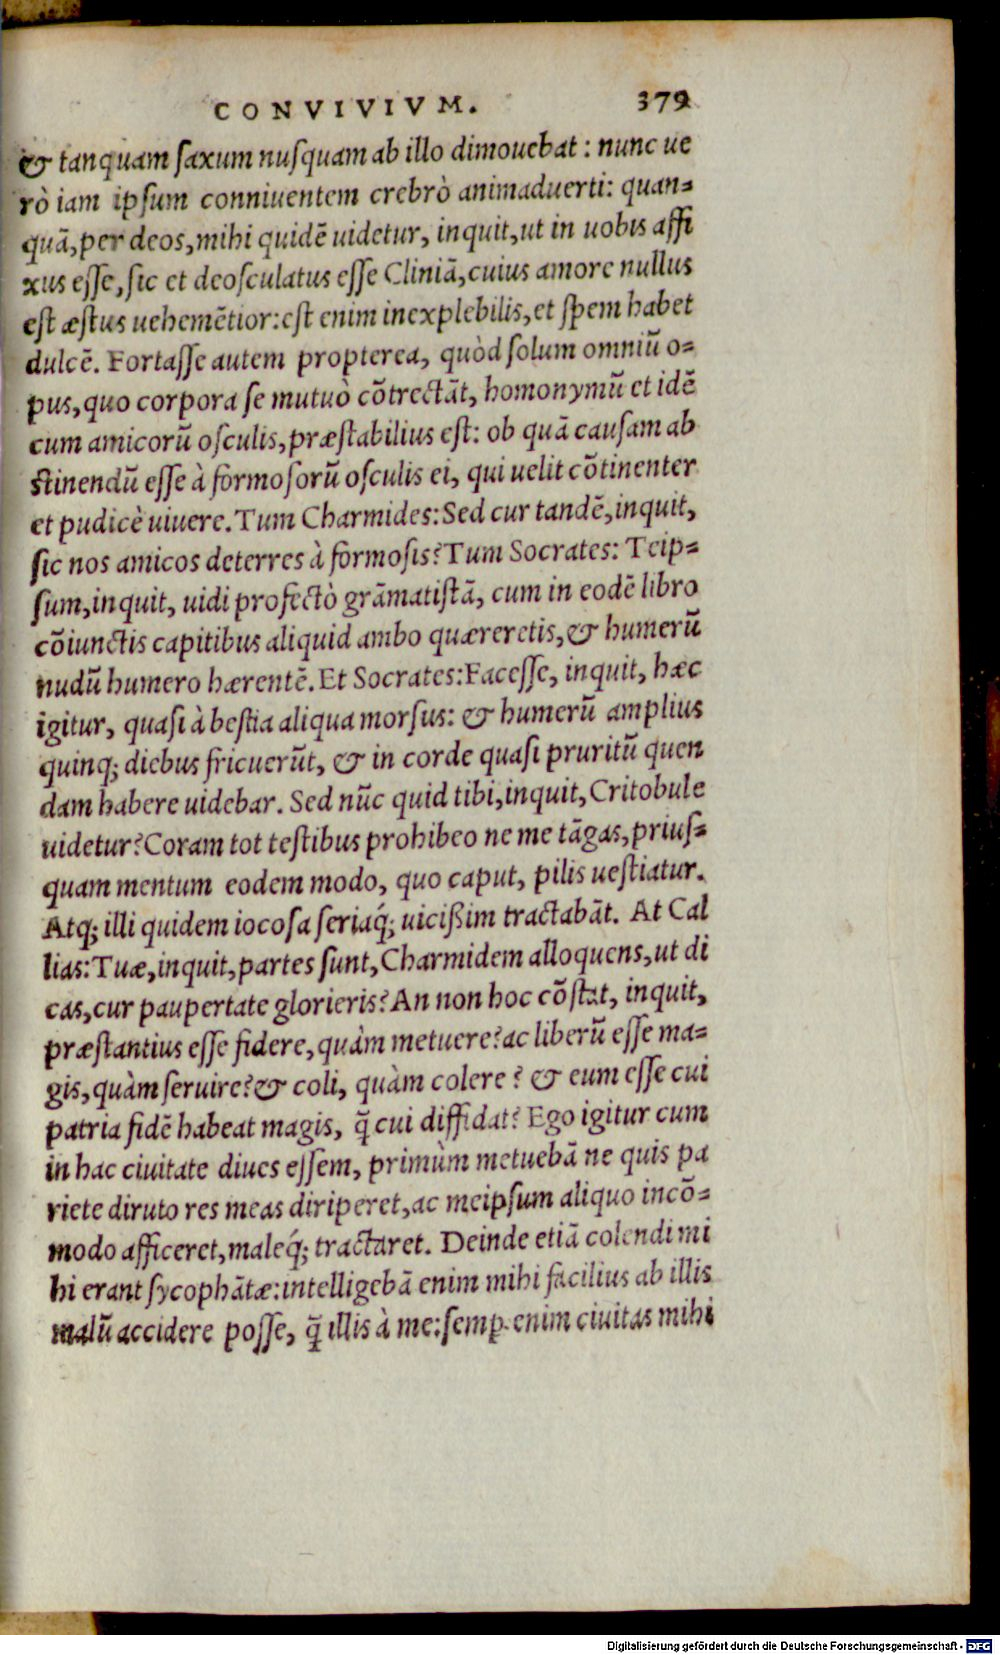 CONVIVIVM. 379
& tanquam ſaxum nuſquam ab illo dimouebat : nunc ue
rò iam ipſum conniuentem crebrò animaduerti: quan-
quā, per deos, mihi quidē uidetur, inquit, ut in uobis affi
xus eſſe, ſic et deoſculatus eſſe Cliniā, cuius amore nullus
eſt æſtus uehemētior: eſt enim inexplebilis, et ſpem habet
dulcē. Fortaſſe autem propterea, quòd ſolum omniū o-
pus, quo corpora ſe mutuò cōtrectāt, homonymū et idē
cum amicorū oſculis, præſtabilius eſt: ob quā cauſam ab
ſtinendū eſſe à formoſorū oſculis ei, qui uelit cōtinenter
et pudicè uiuere. Tum Charmides: Sed cur tandē, inquit,
ſic nos amicos deterres à formoſis? Tum Socrates: Teip-
ſum, inquit, uidi profectò grāmatiſtā, cum in eodē libro
cōiunctis capitibus aliquid ambo quæreretis, & humerū
nudū humero hærentē. Et Socrates: Faceſſe, inquit, hæc
igitur, quaſi à beſtia aliqua morſus: & humerū amplius
quinq; diebus fricuerūt, & in corde quaſi pruritū quen
dam habere uidebar. Sed nūc quid tibi, inquit, Critobule
uidetur? Coram tot teſtibus prohibeo ne me tāgas, priuſ-
quam mentum eodem modo, quo caput, pilis ueſtiatur.
Atq; illi quidem iocoſa ſeriaq́; uicißim tractabāt. At Cal
lias: Tuæ, inquit, partes ſunt, Charmidem alloquens, ut di
cas, cur paupertate glorieris? An non hoc cōſtat, inquit,
præſtantius eſſe fidere, quàm metuere? ac liberū eſſe ma-
gis, quàm ſeruire? & coli, quàm colere ? & eum eſſe cui
patria fidē habeat magis, q̄ cui diffidat? Ego igitur cum
in hac ciuitate diues eſſem, primùm metuebā ne quis pa
riete diruto res meas diriperet, ac meipſum aliquo incō-
modo afficeret, maleq́; tractaret. Deinde etiā colendi mi
hi erant ſycophātæ: intelligebā enim mihi facilius ab illis
malū accidere poſſe, q̄ illis à me: ſemꝑ enim ciuitas mihi
Digitalisierung gefördert durch die Deutsche Forschungsgemeinschaft - DFG